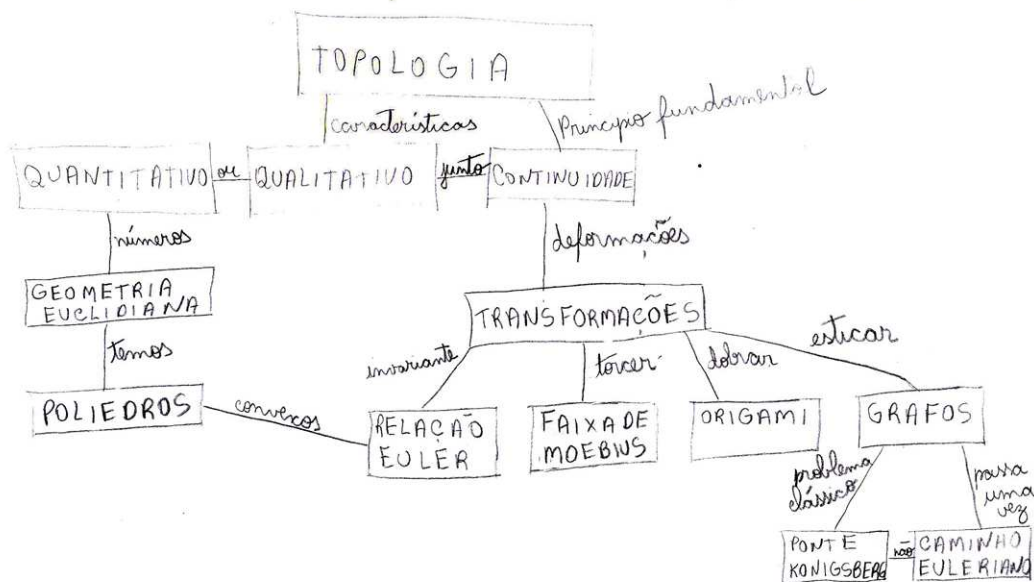 TOPOLOGIA
características
Princípio fundamental
QUANTITATIVO ou QUALITATIVO junto CONTINUIDADE
números
deformações
GEOMETRIA
EUCLIDIANA
TRANSFORMAÇÕES
temos
invariante
torcer
dobrar
esticar
POLIEDROS
convexos
RELAÇÃO
EULER
FAIXA DE
MOEBIUS
ORIGAMI
GRAFOS
problema
clássico
passa
uma
vez
PONTE
KONIGSBERG
não
CAMINHO
EULERIANO